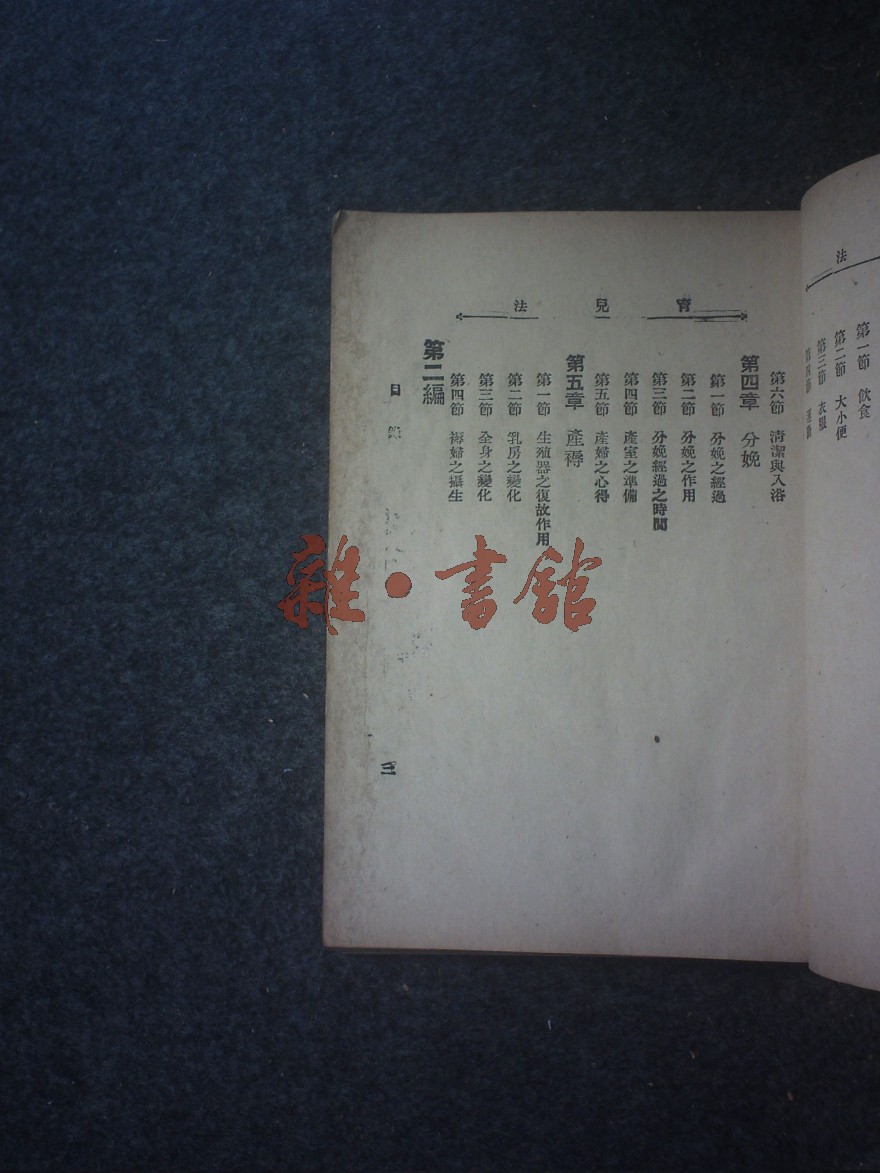 法
第一節 飲食
第二節 大小便
第三節 衣服
第四節 運動
育兒法
第六節 清潔與入浴
第四章 分娩
第一節 分娩之經過
第二節 分娩之作用
第三節 分娩經過之時間
第四節 產室之準備
第五節 產婦之心得
第五章 產褥
第一節 生殖器之復故作用
第二節 乳房之變化
第三節 全身之變化
第四節 褥婦之攝生
第二編
目錄
三
雜·書館